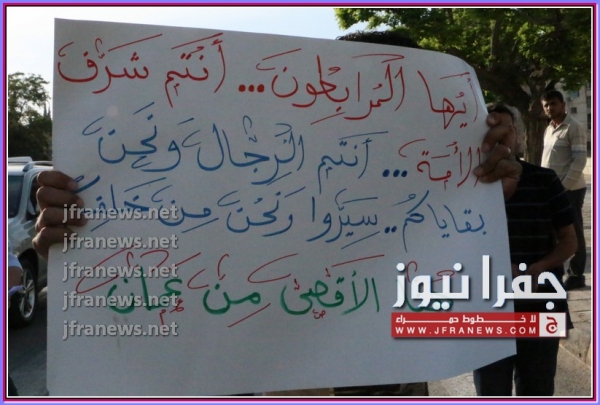 أيها المرابطون... أنتم شرف
الأمة... أنتم الرجال ونحن
بقاياكم.. سيروا ونحن من
الأقصى من عمان
jfranews.net
jfranews.net
jfranews.net
jfranews.net
jfranews.net
جفرا نيوز
لا خطوط حمراء
WWW.JFRANEWS.COM